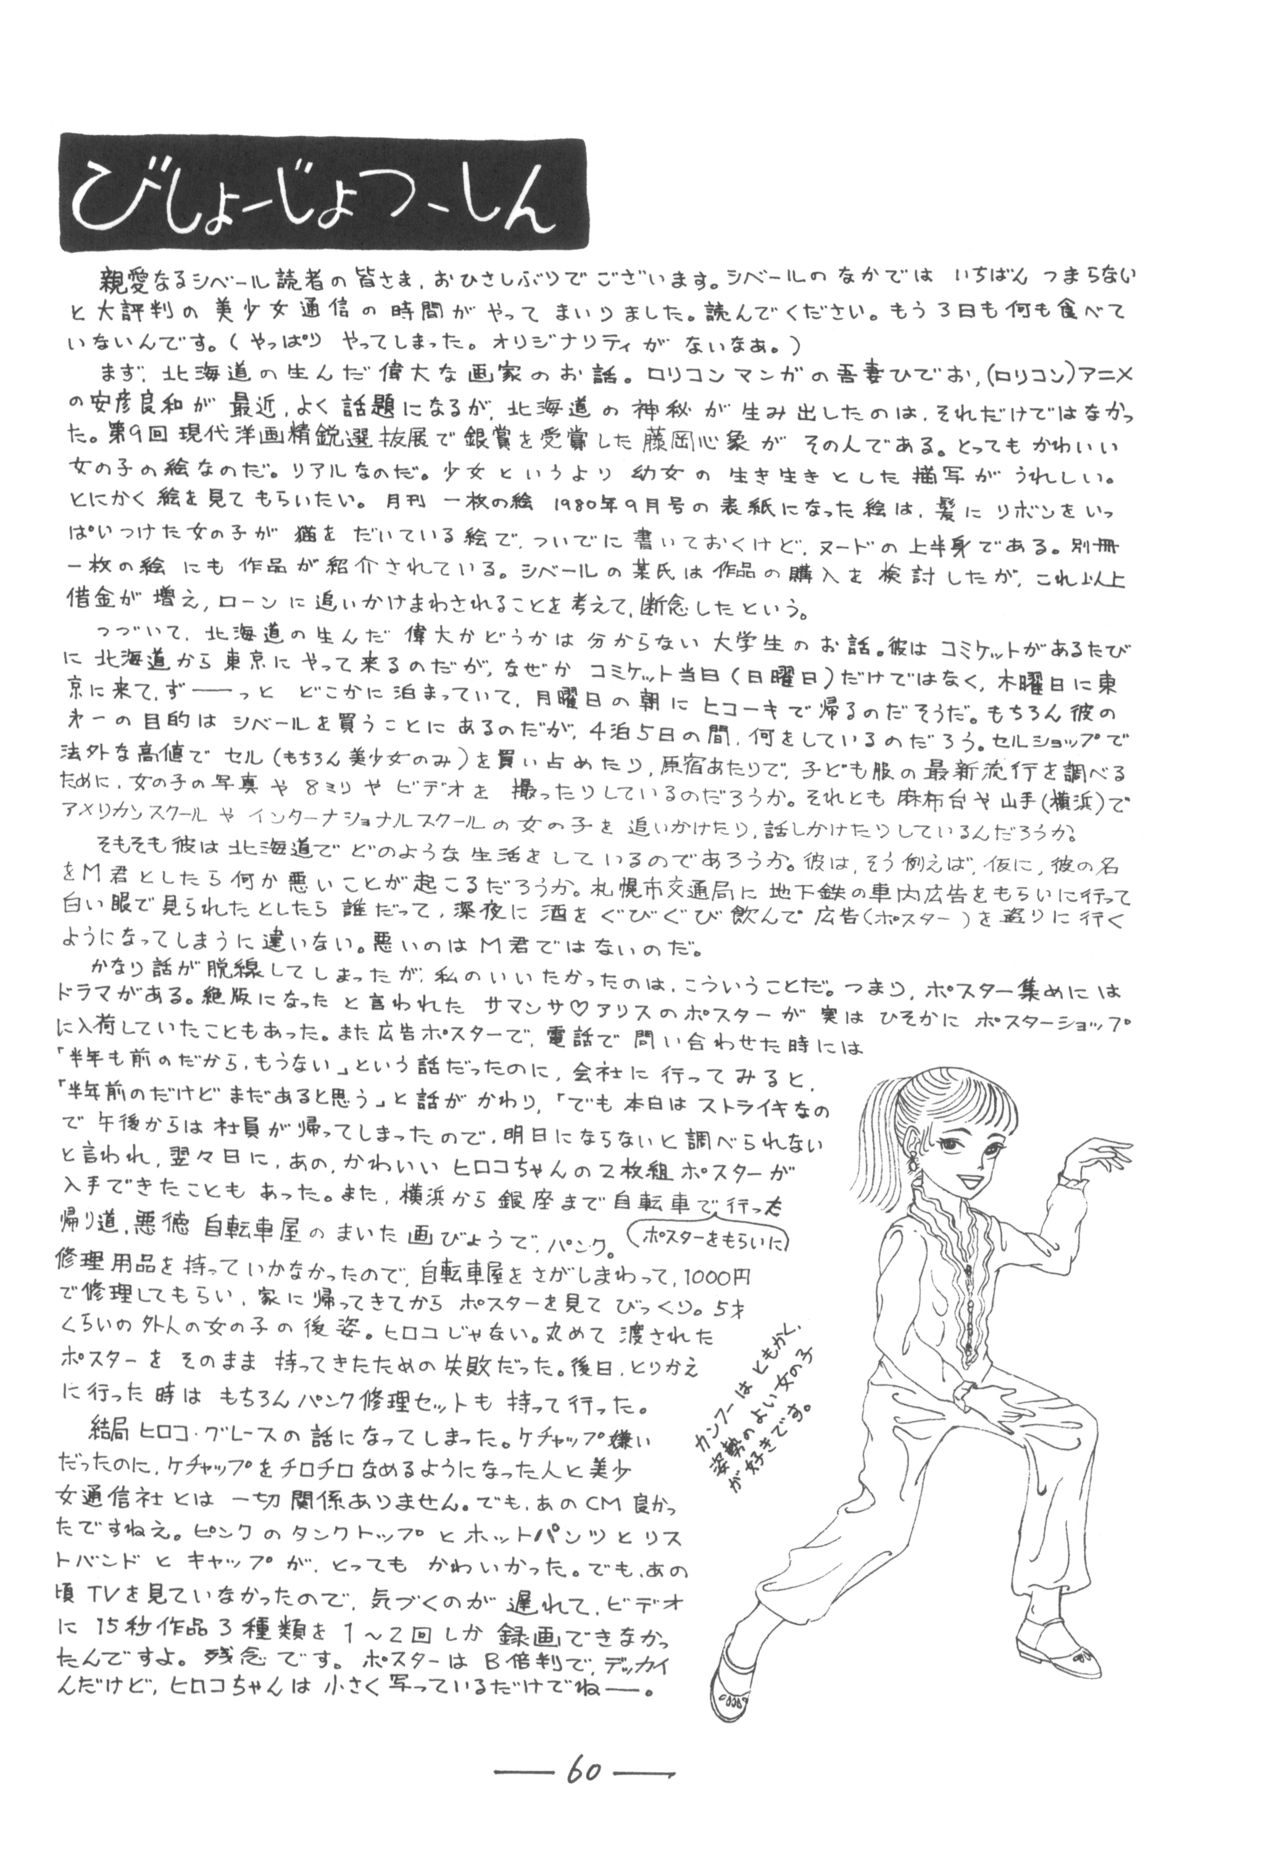 びしょーじょつーしん
親愛なるシベール読者の皆さま，おひさしぶりでございます。シベールのなかではいちばんつまらない
と大評判の美少女通信の時間がやってまいりました。読んでください。もう3日も何も食べて
いないんです。（やっぱりやってしまった。オリジナリティがないなあ。）
まず，北海道の生んだ偉大な画家のお話。ロリコンマンガの吾妻ひでお，(ロリコン)アニメ
の安彦良和が最近，よく話題になるが，北海道の神秘が生み出したのは，それだけではなかっ
た。第9回現代洋画精鋭選抜展で銀賞を受賞した藤岡心象がその人である。とってもかわいい
女の子の絵なのだ。リアルなのだ。少女というより幼女の生き生きとした描写がうれしい。
とにかく絵を見てもらいたい。月刊一枚の絵1980年9月号の表紙になった絵は，髪にリボンをいっ
ぱいつけた女の子が猫をだいている絵で，ついでに書いておくけど，ヌードの上半身である。別冊
一枚の絵にも作品が紹介されている。シベールの某氏は作品の購入を検討したが，これ以上
借金が増え，ローンに追いかけまわされることを考えて，断念したという。
つづいて，北海道の生んだ偉大かどうかは分からない大学生のお話。彼はコミケットがあるたび
に北海道から東京にやって来るのだが，なぜかコミケット当日(日曜日)だけではなく，木曜日に東
京に来て，ず――っとどこかに泊まっていて，月曜日の朝にヒコーキで帰るのだそうだ。もちろん彼の
才一の目的はシベールを買うことにあるのだが，4泊5日の間，何をしているのだろう。セルショップで
法外な高値でセル(もちろん美少女のみ)を買い占めたり，原宿あたりで，子ども服の最新流行を調べる
ために，女の子の写真や8ミリやビデオを撮ったりしているのだろうか。それとも麻布台や山手(横浜)で
アメリカンスクールやインターナショナルスクールの女の子を追いかけたり，話しかけたりしているんだろうか。
そもそも彼は北海道でどのような生活をしているのであろうか。彼は，そう例えば，仮に，彼の名
をM君としたら何か悪いことが起こるだろうか。札幌市交通局に地下鉄の車内広告をもらいに行って
白い眼で見られたとしたら誰だって，深夜に酒をぐびぐび飲んで広告(ポスター)を盗りに行く
ようになってしまうに違いない。悪いのはM君ではないのだ。
かなり話が脱線してしまったが，私のいいたかったのは，こういうことだ。つまり，ポスター集めには
ドラマがある。絶版になったと言われたサマンサ♡アリスのポスターが実はひそかにポスターショップ
に入荷していたこともあった。また広告ポスターで，電話で問い合わせた時には
「半年も前のだから，もうない」という話だったのに，会社に行ってみると，
「半年前のだけどまだあると思う」と話がかわり，「でも本日はストライキなの
で午後からは社員が帰ってしまったので，明日にならないと調べられない
と言われ，翌々日に，あの，かわいいヒロコちゃんの2枚組ポスターが
入手できたこともあった。また，横浜から銀座まで自転車で行った
(ポスターをもらいに)
帰り道，悪徳自転車屋のまいた画びょうで，パンク。
修理用品を持っていかなかったので，自転車屋をさがしまわって，1000円
で修理してもらい，家に帰ってきてからポスターを見てびっくり。5才
くらいの外人の女の子の後姿。ヒロコじゃない。丸めて渡された
ポスターをそのまま持ってきたための失敗だった。後日，とりかえ
に行った時はもちろんパンク修理セットも持って行った。
結局ヒロコ・グレースの話になってしまった。ケチャップ嫌い
だったのに，ケチャップをチロチロなめるようになった人と美少
女通信社とは一切関係ありません。でも，あのCM良かっ
たですねえ。ピンクのタンクトップとホットパンツとリス
トバンドとキャップが，とってもかわいかった。でも，あの
頃TVを見ていなかったので，気づくのが遅れて，ビデオ
に15秒作品3種類を1～2回しか録画できなかっ
たんですよ。残念です。ポスターはB倍判で，デッカイ
んだけど，ヒロコちゃんは小さく写っているだけでね――。
カンフーはともかく，
姿勢のよい女の子
が好きです。
―60―